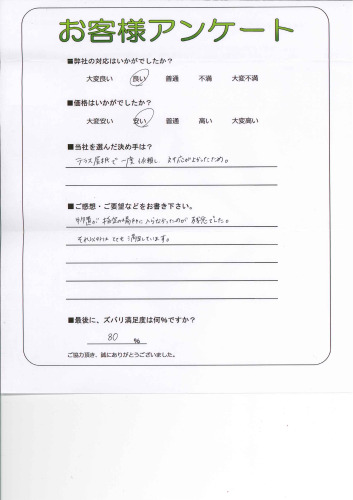 お客様アンケート
■弊社の対応はいかがでしたか？
大変良い 良い 普通 不満 大変不満
■価格はいかがでしたか？
大変安い 安い 普通 高い 大変高い
■当社を選んだ決め手は？
テラス屋根で一度依頼し 対応がよかったため。
■ご感想・ご要望などをお書き下さい。
物置が 指定の場所に入らなかったのが 残念でした。
それ以外は とても 満足しています。
■最後に、ズバリ満足度は何%ですか？
80 %
ご協力頂き、誠にありがとうございました。